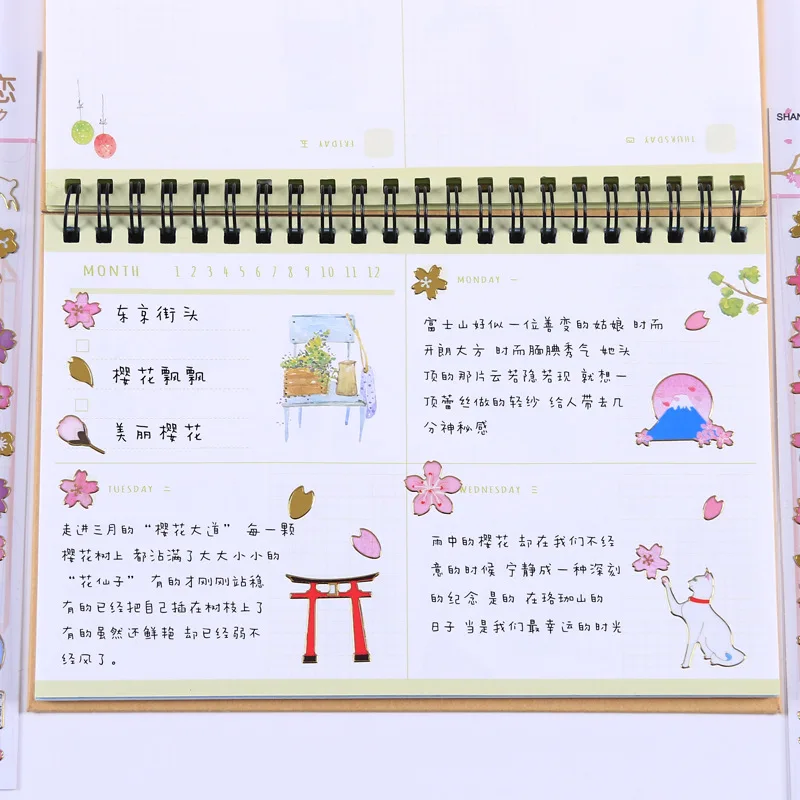 恋
ク
SHAN
FRIDAY 五
THURSDAY 四
MONTH 1 2 3 4 5 6 7 8 9 10 11 12
东京街头
樱花飘飘
美丽樱花
MONDAY 一
富士山好似一位善变的姑娘 时而
开朗大方 时而腼腆秀气 她头
顶的那片云若隐若现 就想一
顶蕾丝做的轻纱 给人带去几
分神秘感
TUESDAY 二
走进三月的“樱花大道” 每一颗
樱花树上 都沾满了大大小小的
“花仙子” 有的才刚刚站稳
有的已经把自己插在树枝上了
有的虽然还鲜艳 却已经弱不
经风了。
WEDNESDAY 三
雨中的樱花 却在我们不经
意的时候 宁静成一种深刻
的纪念 是的 在珞珈山的
日子 当是我们最幸运的时光